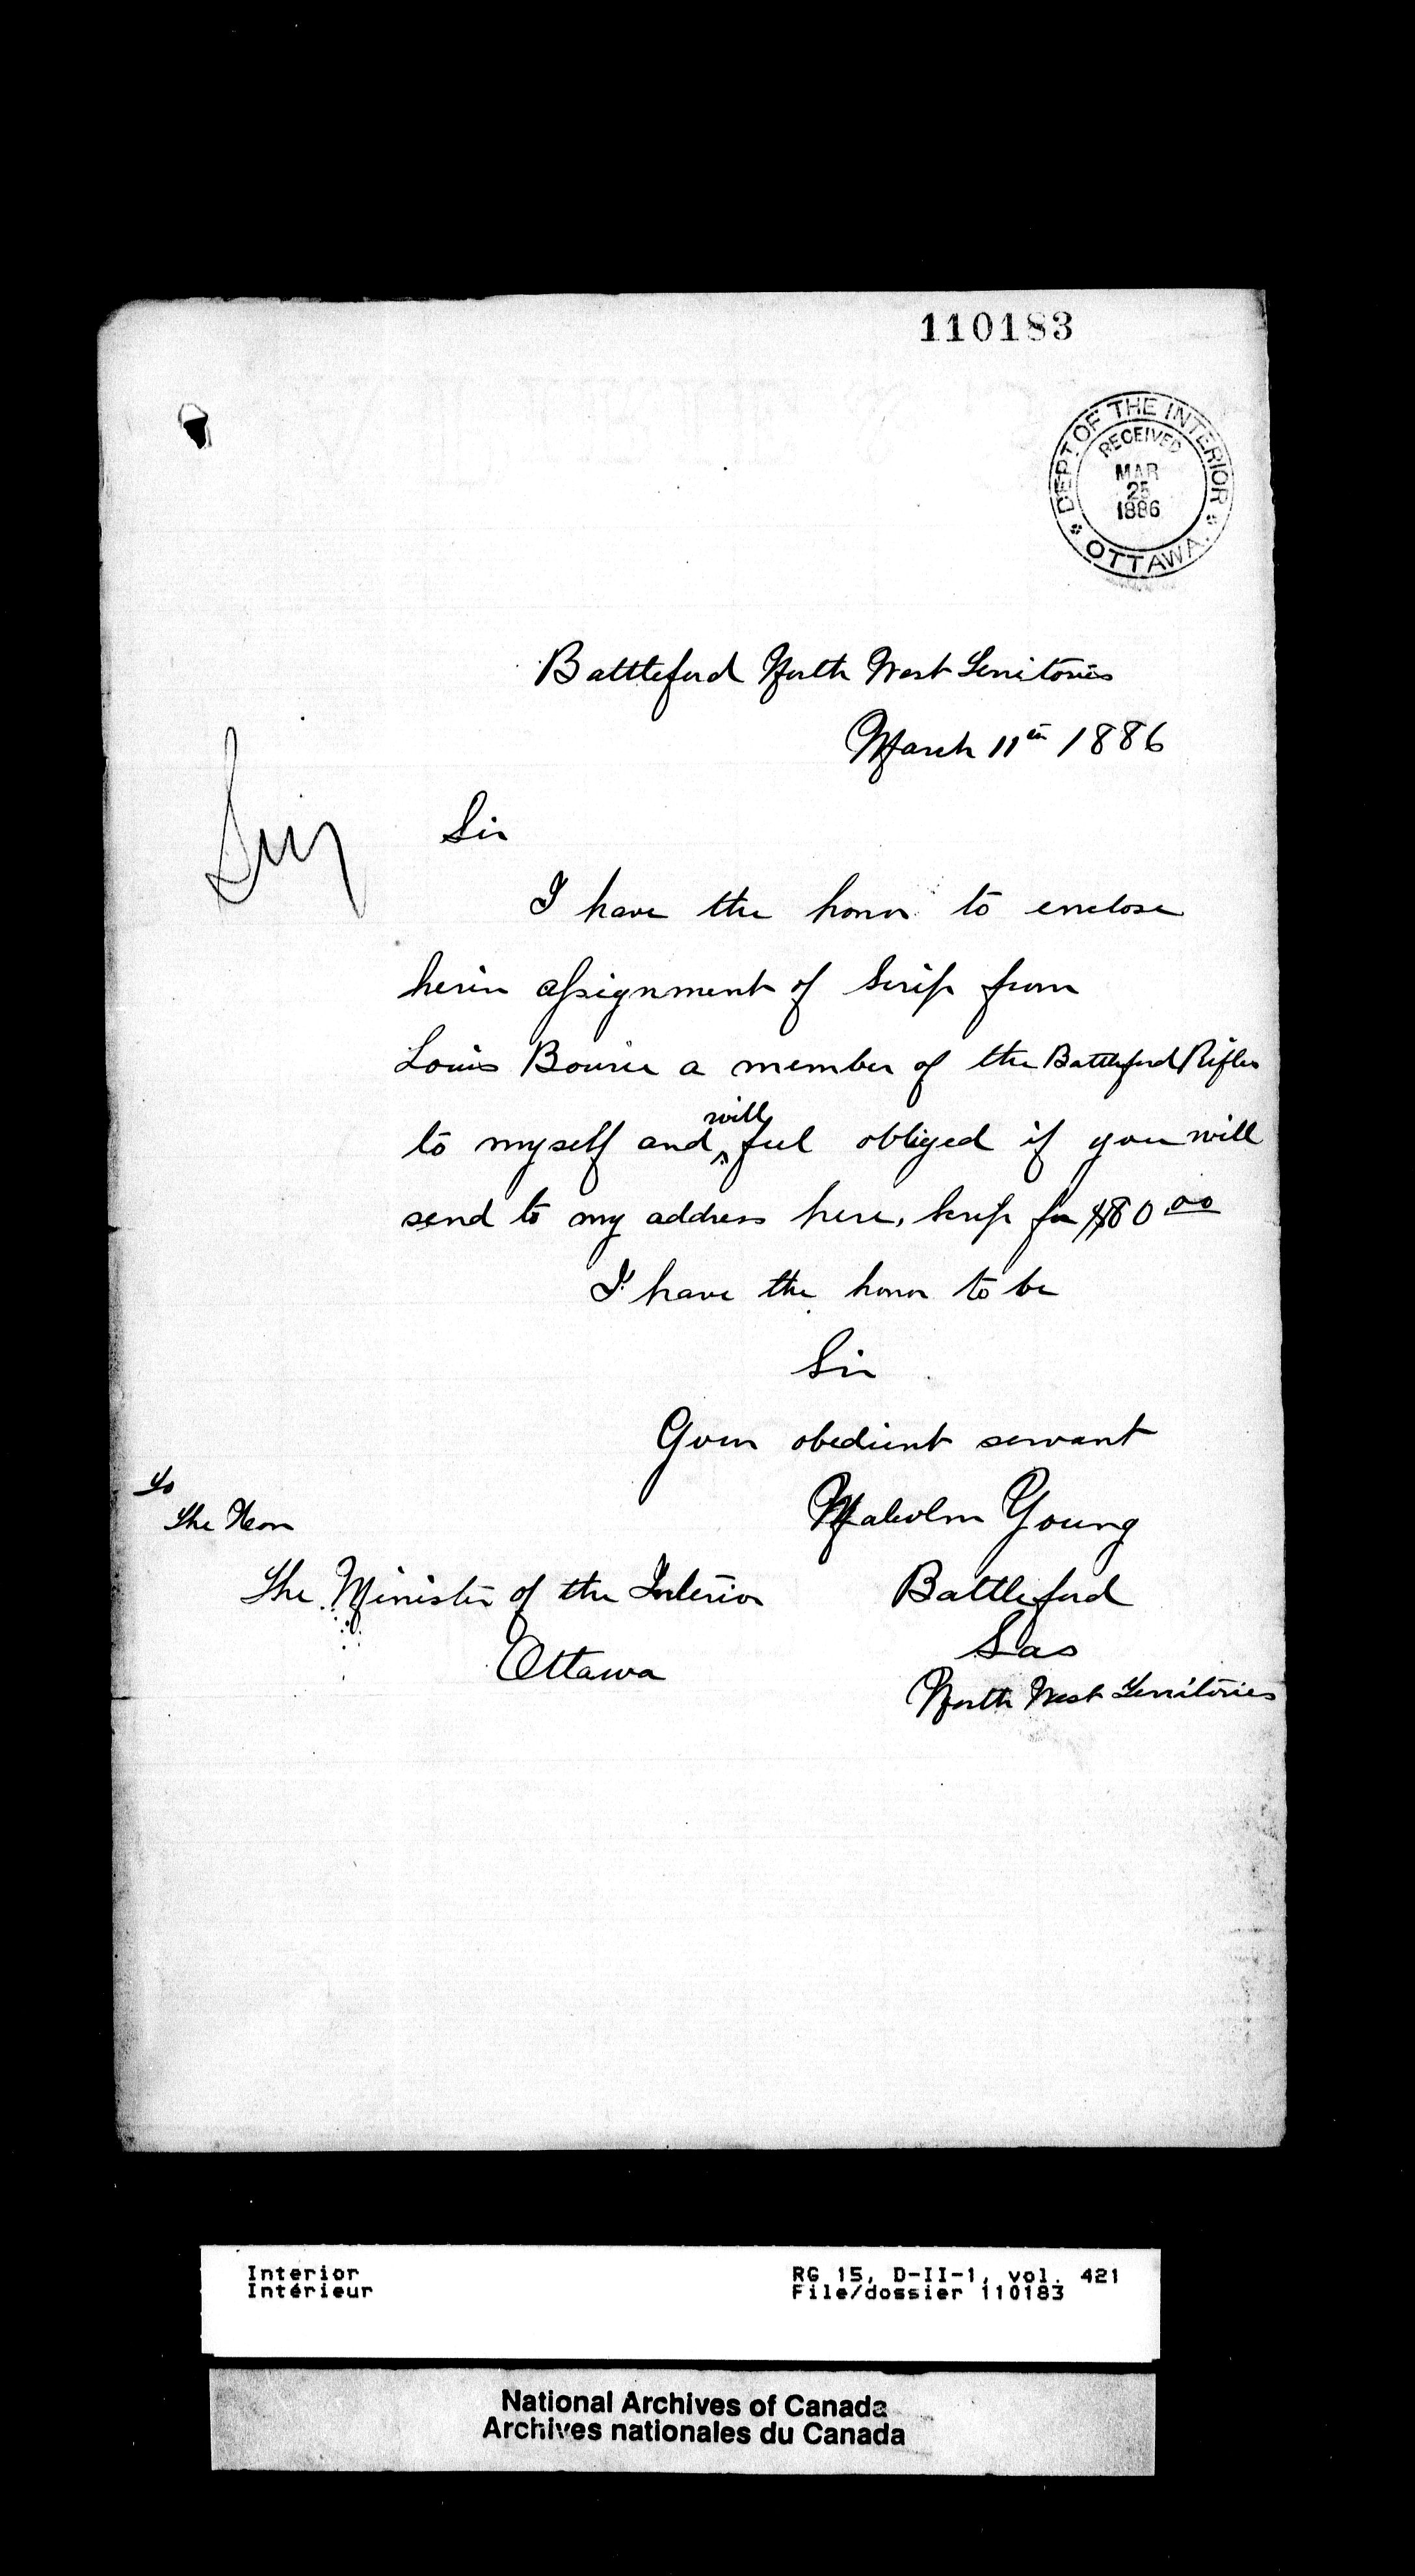 110183
DEPT. OF THE INTERIOR
RECEIVED
MAR
25
1886
OTTAWA.
Battleford North West Territories
March 11th 1886
Sir
I have the honor to enclose
herin assignment of Scrip from
Louis Bourie a member of the Battleford Rifles
to myself and will feel obliged if you will
send to my address here, Scrip for $80.00
I have the honor to be
Sir
Your obedient servant
Malcolm Young
Battleford
Sas
North West Territories
To
The Hon
The Minister of the Interior
Ottawa
Interior
Intérieur
RG 15, D-II-1, vol. 421
File/dossier 110183
National Archives of Canada
Archives nationales du Canada